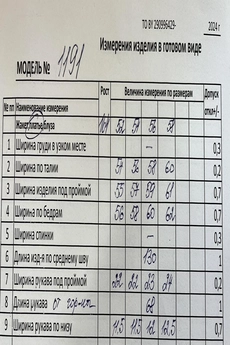 ТО BY 290996429- 2024 г
Измерения изделия в готовом виде
МОДЕЛЬ № 1191
№ пп Наименование измерения Рост Величина измерения по размерам Допуск откл+/-
Жакет,платье,блуза 164 52 54 56 58
1 Ширина груди в узком месте — 0,3
2 Ширина по талии 54 56 58 60 0,2
3 Ширина изделия под проймой 55 57 59 61 0,7
4 Ширина по бедрам 56 58 60 62 0,7
5 Ширина спинки — 0,3
6 Длина изд-я по среднему шву 130 1
7 Ширина рукава под проймой 22 22 23 24 0,2
8 Длина рукава от 68 1
9 Ширина рукава по низу 11,5 11,5 12 12,5 0,7